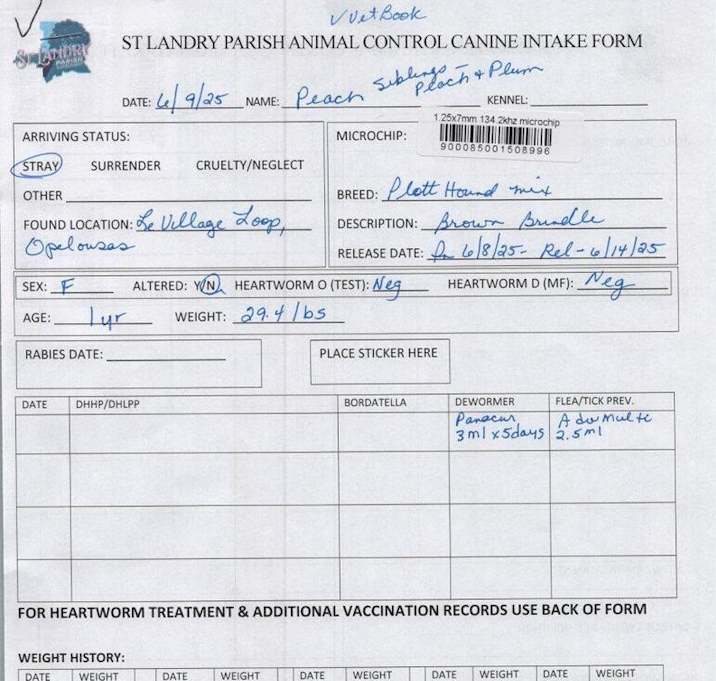 ✓ VetBook
ST LANDRY PARISH
ST LANDRY PARISH ANIMAL CONTROL CANINE INTAKE FORM
DATE: 6/9/25 NAME: Peach Siblings – Peach + Plum KENNEL:
ARRIVING STATUS:
STRAY SURRENDER CRUELTY/NEGLECT
OTHER
FOUND LOCATION: Le Village Loop,
Opelousas
MICROCHIP: 1.25x7mm 134.2khz microchip
900085001508996
BREED: Plott Hound mix
DESCRIPTION: Brown Brindle
RELEASE DATE: In 6/8/25- Rel - 6/14/25
SEX: F ALTERED: Y/N HEARTWORM O (TEST): Neg HEARTWORM D (MF): Neg
AGE: 1yr WEIGHT: 29.4 lbs
RABIES DATE: PLACE STICKER HERE
DATE DHHP/DHLPP BORDATELLA DEWORMER FLEA/TICK PREV.
Panacur AdvMulti
3ml x5days 2.5ml
FOR HEARTWORM TREATMENT & ADDITIONAL VACCINATION RECORDS USE BACK OF FORM
WEIGHT HISTORY:
DATE WEIGHT DATE WEIGHT DATE WEIGHT DATE WEIGHT DATE WEIGHT